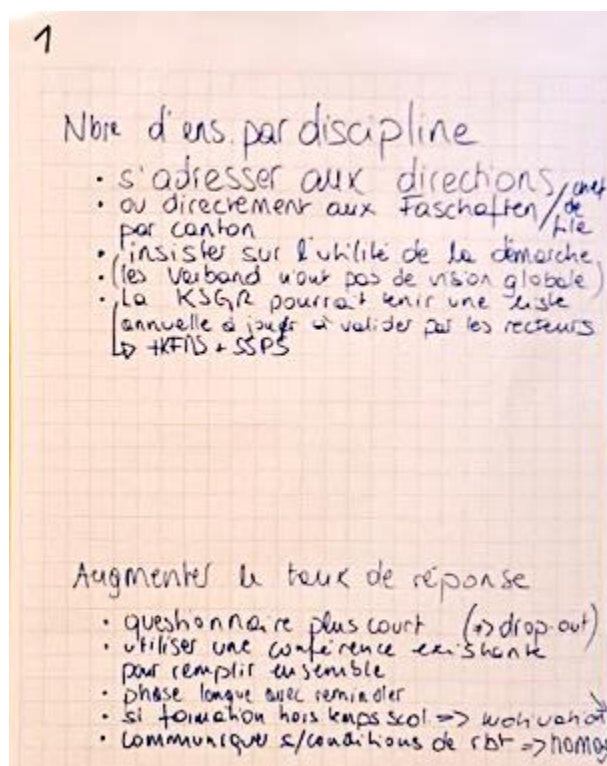 1
Nbre d'ens. par discipline
• s'adresser aux directions
• ou directement aux Faschaften / chef de file
par canton
• insister sur l'utilité de la démarche
• (les Verband n'ont pas de vision globale)
• La KSGR pourrait tenir une liste
annuelle à jour à valider par les recteurs
↳ + SSPS
Augmenter le taux de réponse
• questionnaire plus court (=> drop-out)
• utiliser une conférence existante
pour remplir ensemble
• phase longue avec reminder
• si formation hors temps scol => motivation
• communiquer s/conditions de rbt =>